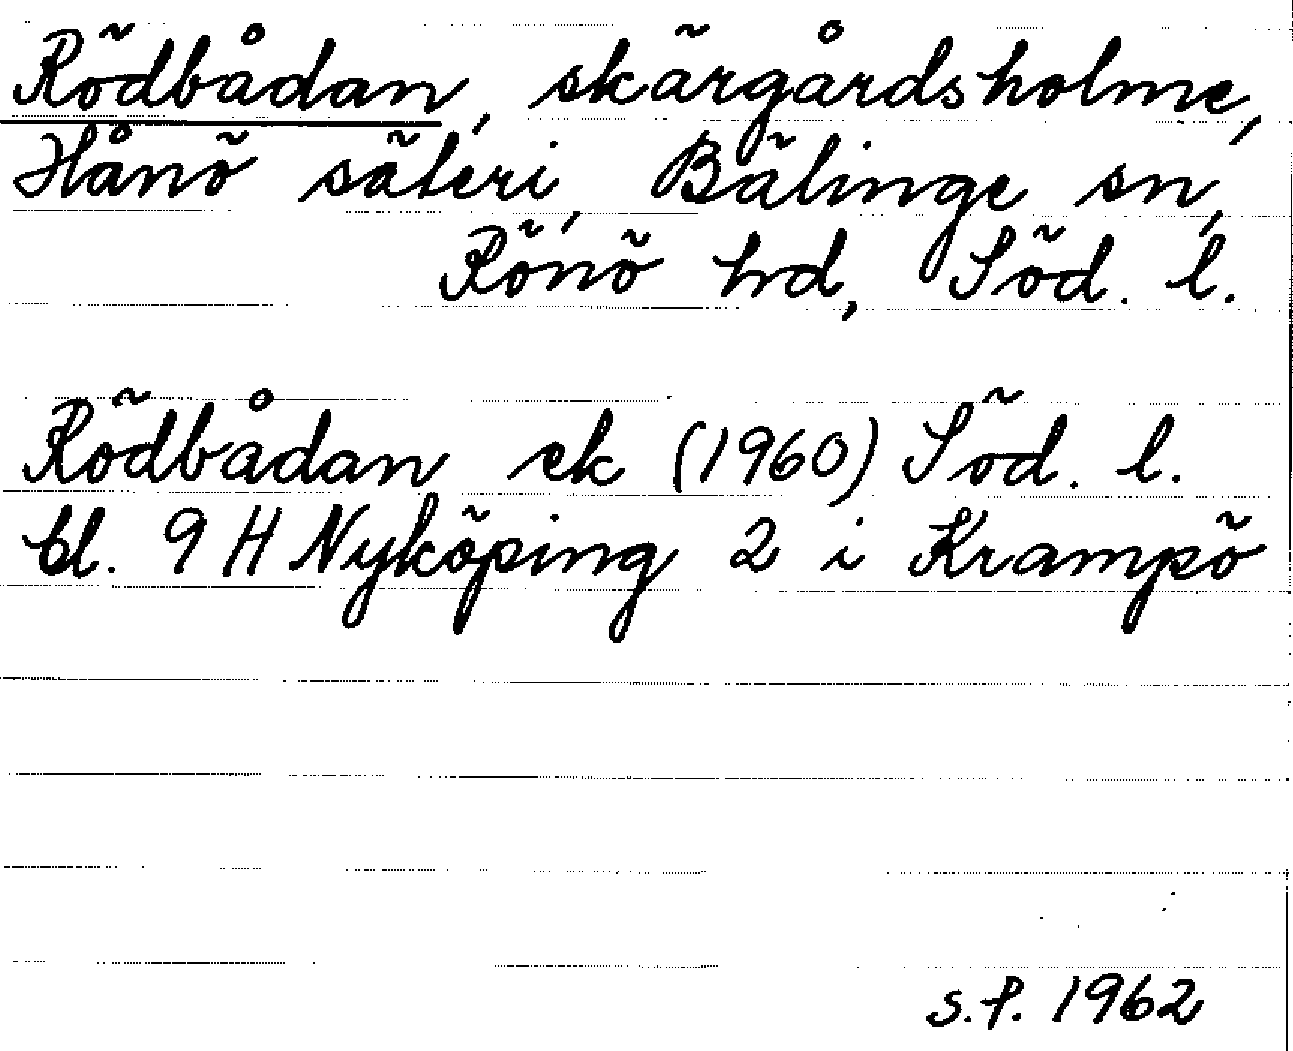 Rödbådan, skärgårdsholme,
Hånö säteri, Bälinge sn,
Rönö hd, Söd. l.
Rödbådan ek (1960) Söd. l.
bl. 9 H Nyköping 2 i Krampö
S.P. 1962